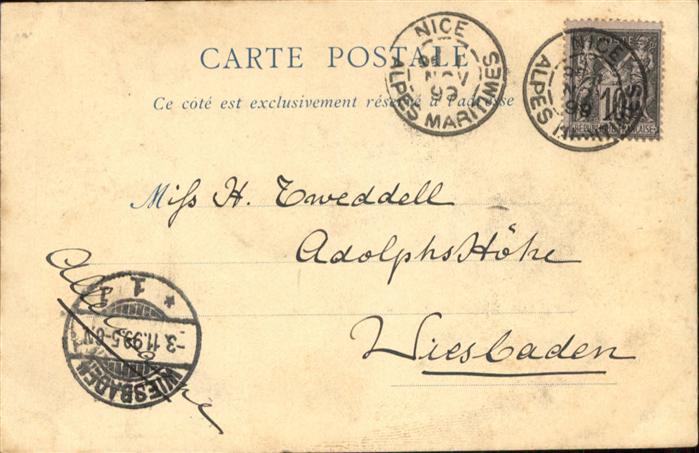 CARTE POSTALE
Ce côté est exclusivement réservé à l'adresse
NICE
NOV
99
ALPES MARITIMES
NICE
99
ALPES MARITIMES
10
Miss H. Tweddell
AdolphsHöhe
Wiesbaden
Allemagne
WIESBADEN
1
-3.11.99.5-6N